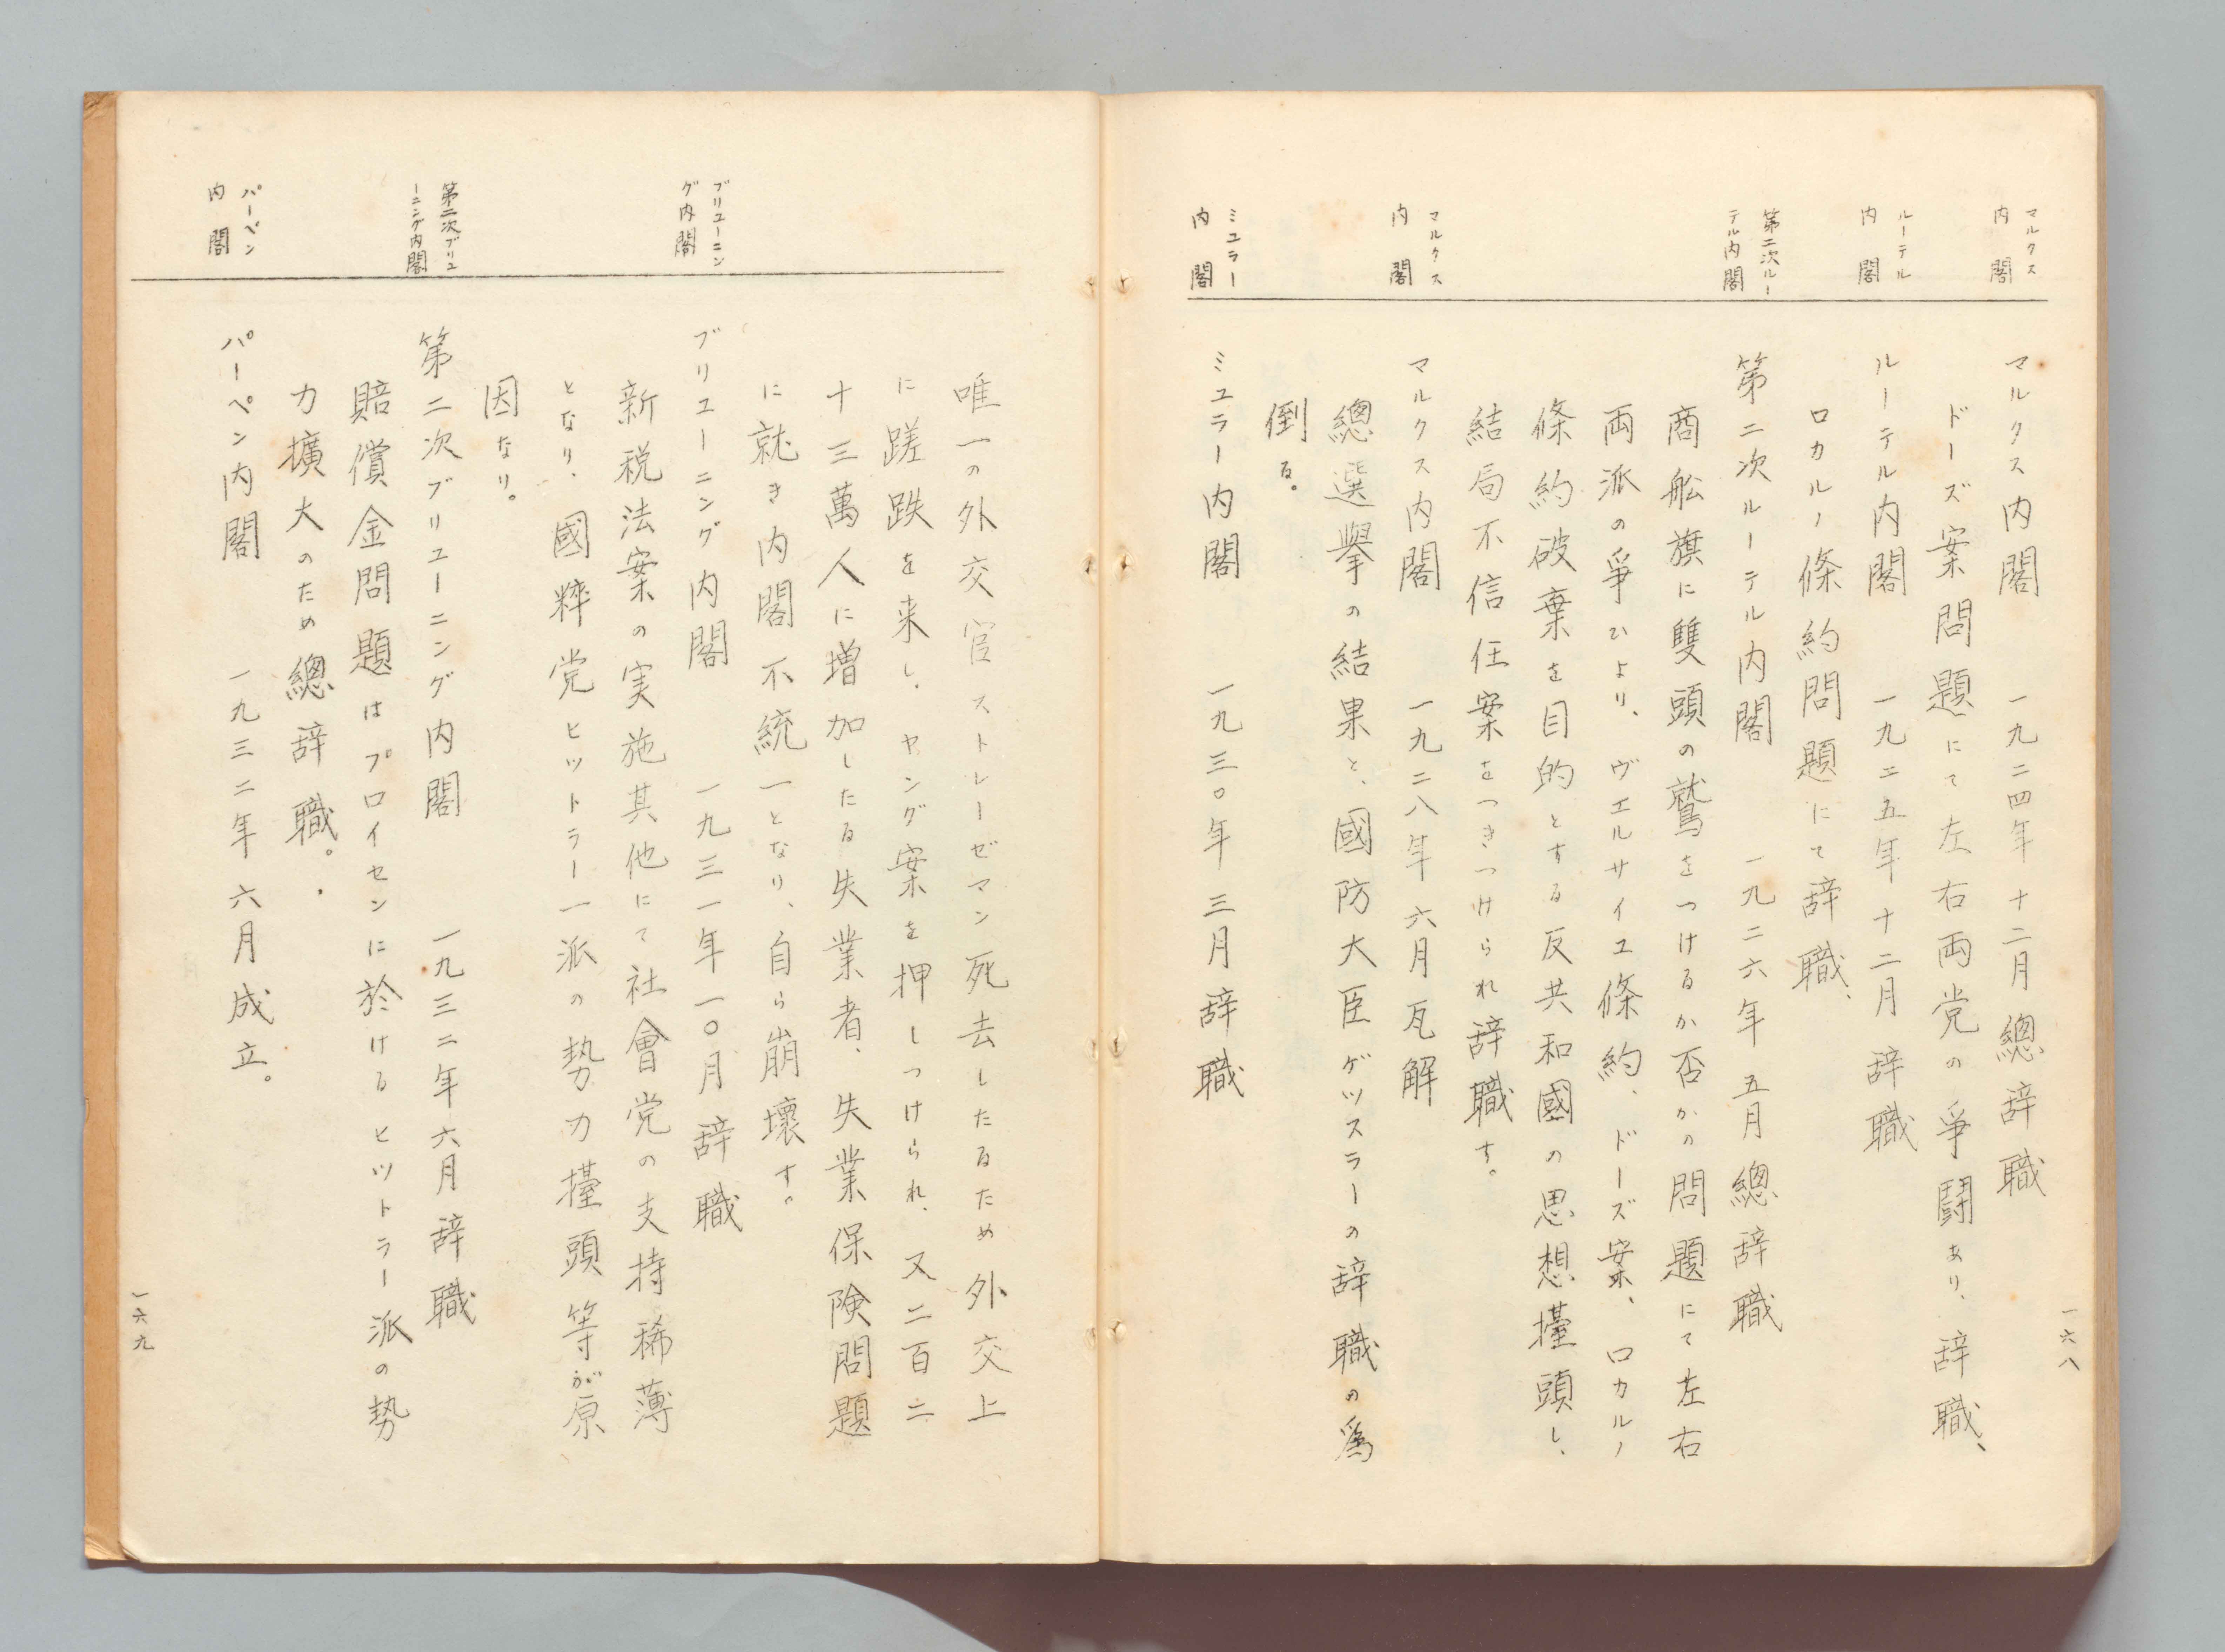 マルクス
内閣
ルーテル
内閣
第二次ルー
テル内閣
マルクス
内閣
ミユラー
内閣
マルクス内閣 一九二四年十二月總辞職
ドーズ案問題にて左右両党の爭闘あり、辞職、
ルーテル内閣 一九二五年十二月辞職
ロカルノ條約問題にて辞職、
第二次ルーテル内閣 一九二六年五月總辞職
商船旗に雙頭の鷲をつけるか否かの問題にて左右
両派の爭ひより、ヴエルサイユ條約、ドーズ案、ロカルノ
條約破棄を目的とする反共和國の思想擡頭し、
結局不信任案をつきつけられ辞職す。
マルクス内閣 一九二八年六月瓦解
總選擧の結果と、國防大臣ゲツスラーの辞職の爲
倒る。
ミユラー内閣 一九三〇年三月辞職
一六八
ブリユーニン
グ内閣
第二次ブリユ
ーニング内閣
パーペン
内閣
唯一の外交官ストレーゼマン死去したるため外交上
に蹉跌を来し、ヤング案を押しつけられ、又二百二
十三萬人に増加したる失業者、失業保険問題
に就き内閣不統一となり、自ら崩壊す。
ブリユーニング内閣 一九三一年一〇月辞職
新税法案の実施其他にて社會党の支持稀薄
となり、國粹党ヒツトラー一派の勢力擡頭等が原
因なり。
第二次ブリユーニング内閣 一九三二年六月辞職
賠償金問題はプロイセンに於けるヒツトラー派の勢
力擴大のため總辞職。
パーペン内閣 一九三二年六月成立。
一六九